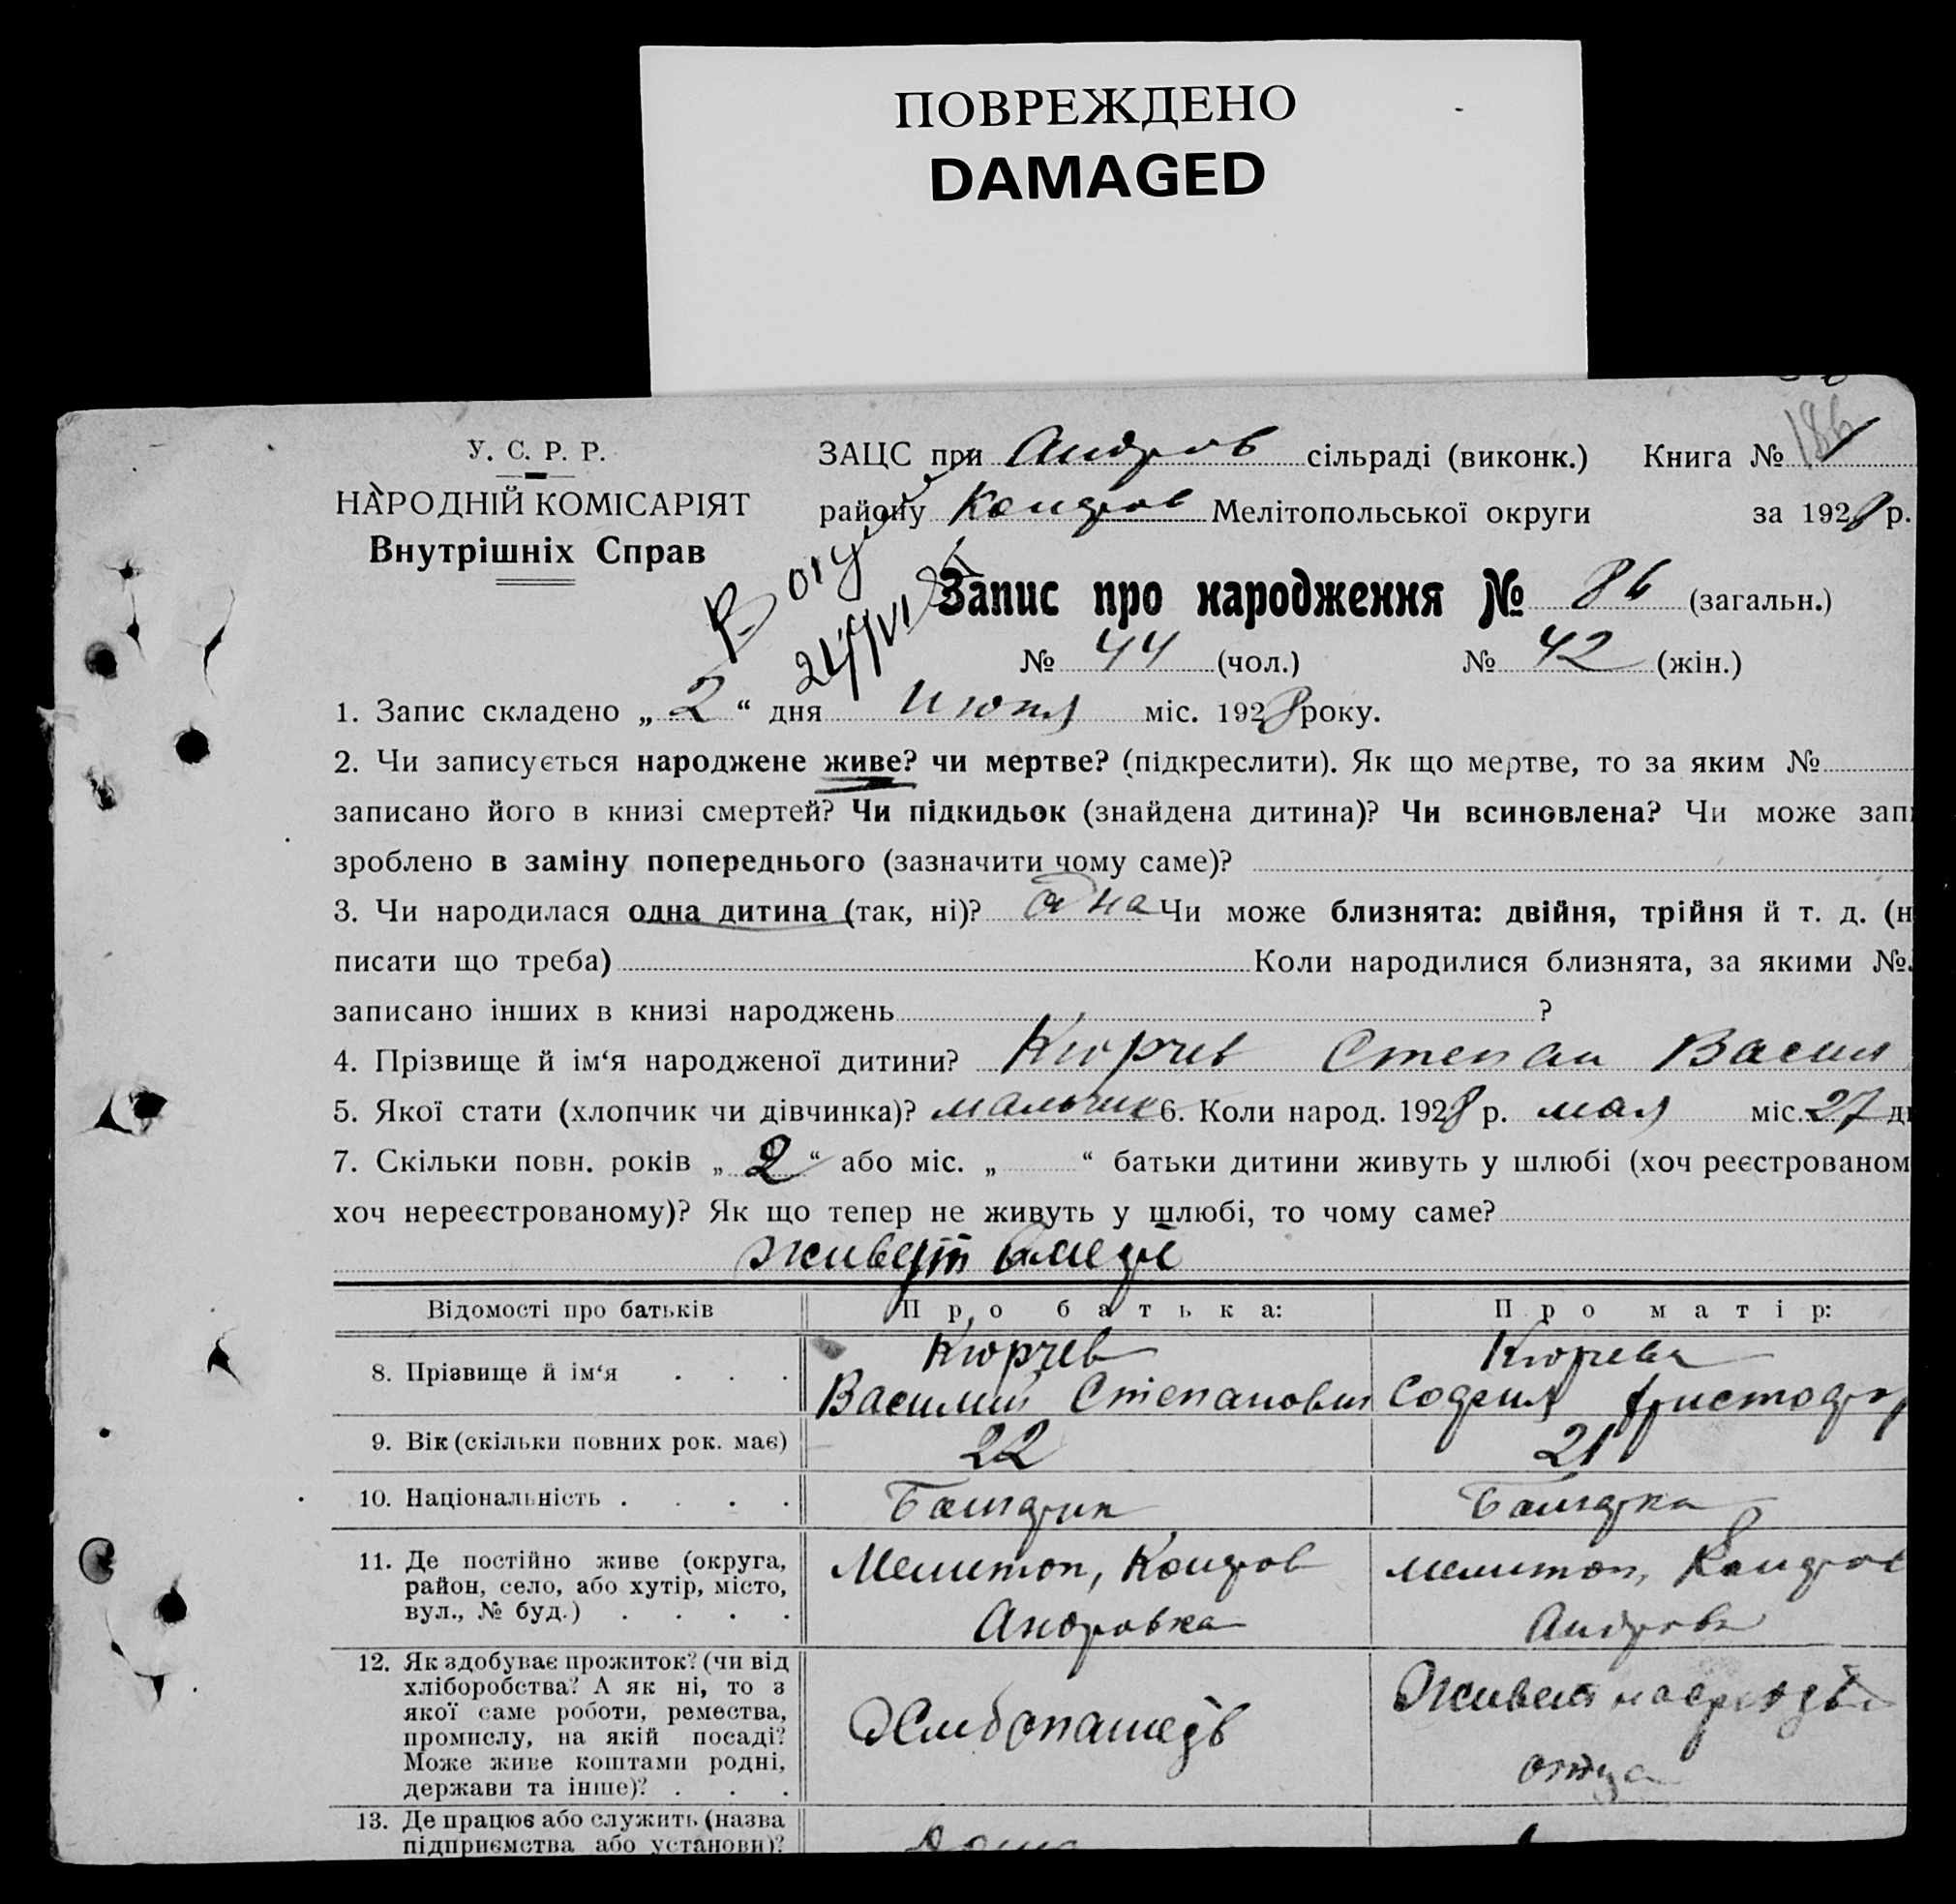 ПОВРЕЖДЕНО
DAMAGED
У. С. Р. Р.
НАРОДНІЙ КОМІСАРІЯТ
Внутрішніх Справ
ЗАЦС при Андров сільраді (виконк.) Книга № 1
186
району Колдров Мелітопольської округи за 1928 р.
24/VI
Запис про народження № 86 (загальн.)
№ 44 (чол.) № 42 (жін.)
1. Запис складено „ 2 “ дня Июня міс. 1928 року.
2. Чи записується народжене живе? чи мертве? (підкреслити). Як що мертве, то за яким №
записано його в книзі смертей? Чи підкидьок (знайдена дитина)? Чи всиновлена? Чи може зап
зроблено в заміну попереднього (зазначити чому саме)?
3. Чи народилася одна дитина (так, ні)? одна Чи може близнята: двійня, трійня й т. д. (н
писати що треба) Коли народилися близнята, за якими №
записано інших в книзі народжень ?
4. Прізвище й ім‘я народженої дитини? Кюрчев Степан Васил
5. Якої стати (хлопчик чи дівчинка)? мальчик 6. Коли народ. 1928 р. мая міс. 27 д
7. Скільки повн. років „ 2 “ або міс. „ “ батьки дитини живуть у шлюбі (хоч реєстрованом
хоч нереєстрованому)? Як що тепер не живуть у шлюбі, то чому саме?
живут
Відомості про батьків Про батька: Про матір:
8. Прізвище й ім‘я . . . Кюрчев Василий Степанович Кюрчева София Христофор
9. Вік (скільки повних рок. має) 22 21
10. Національність . . . . Болгарин Болгарка
11. Де постійно живе (округа, район, село, або хутір, місто, вул., № буд.) . . . . Мелитоп, Колдров Андровка мелитоп, Колдров Андровк
12. Як здобуває прожиток? (чи від хліборобства? А як ні, то з якої саме роботи, ремества, промислу, на якій посаді? Може живе коштами родні, держави та інше)? . . . Хлибопашедъ Живет на средзтв отца
13. Де працює або служить (назва
підприємства або установи)?